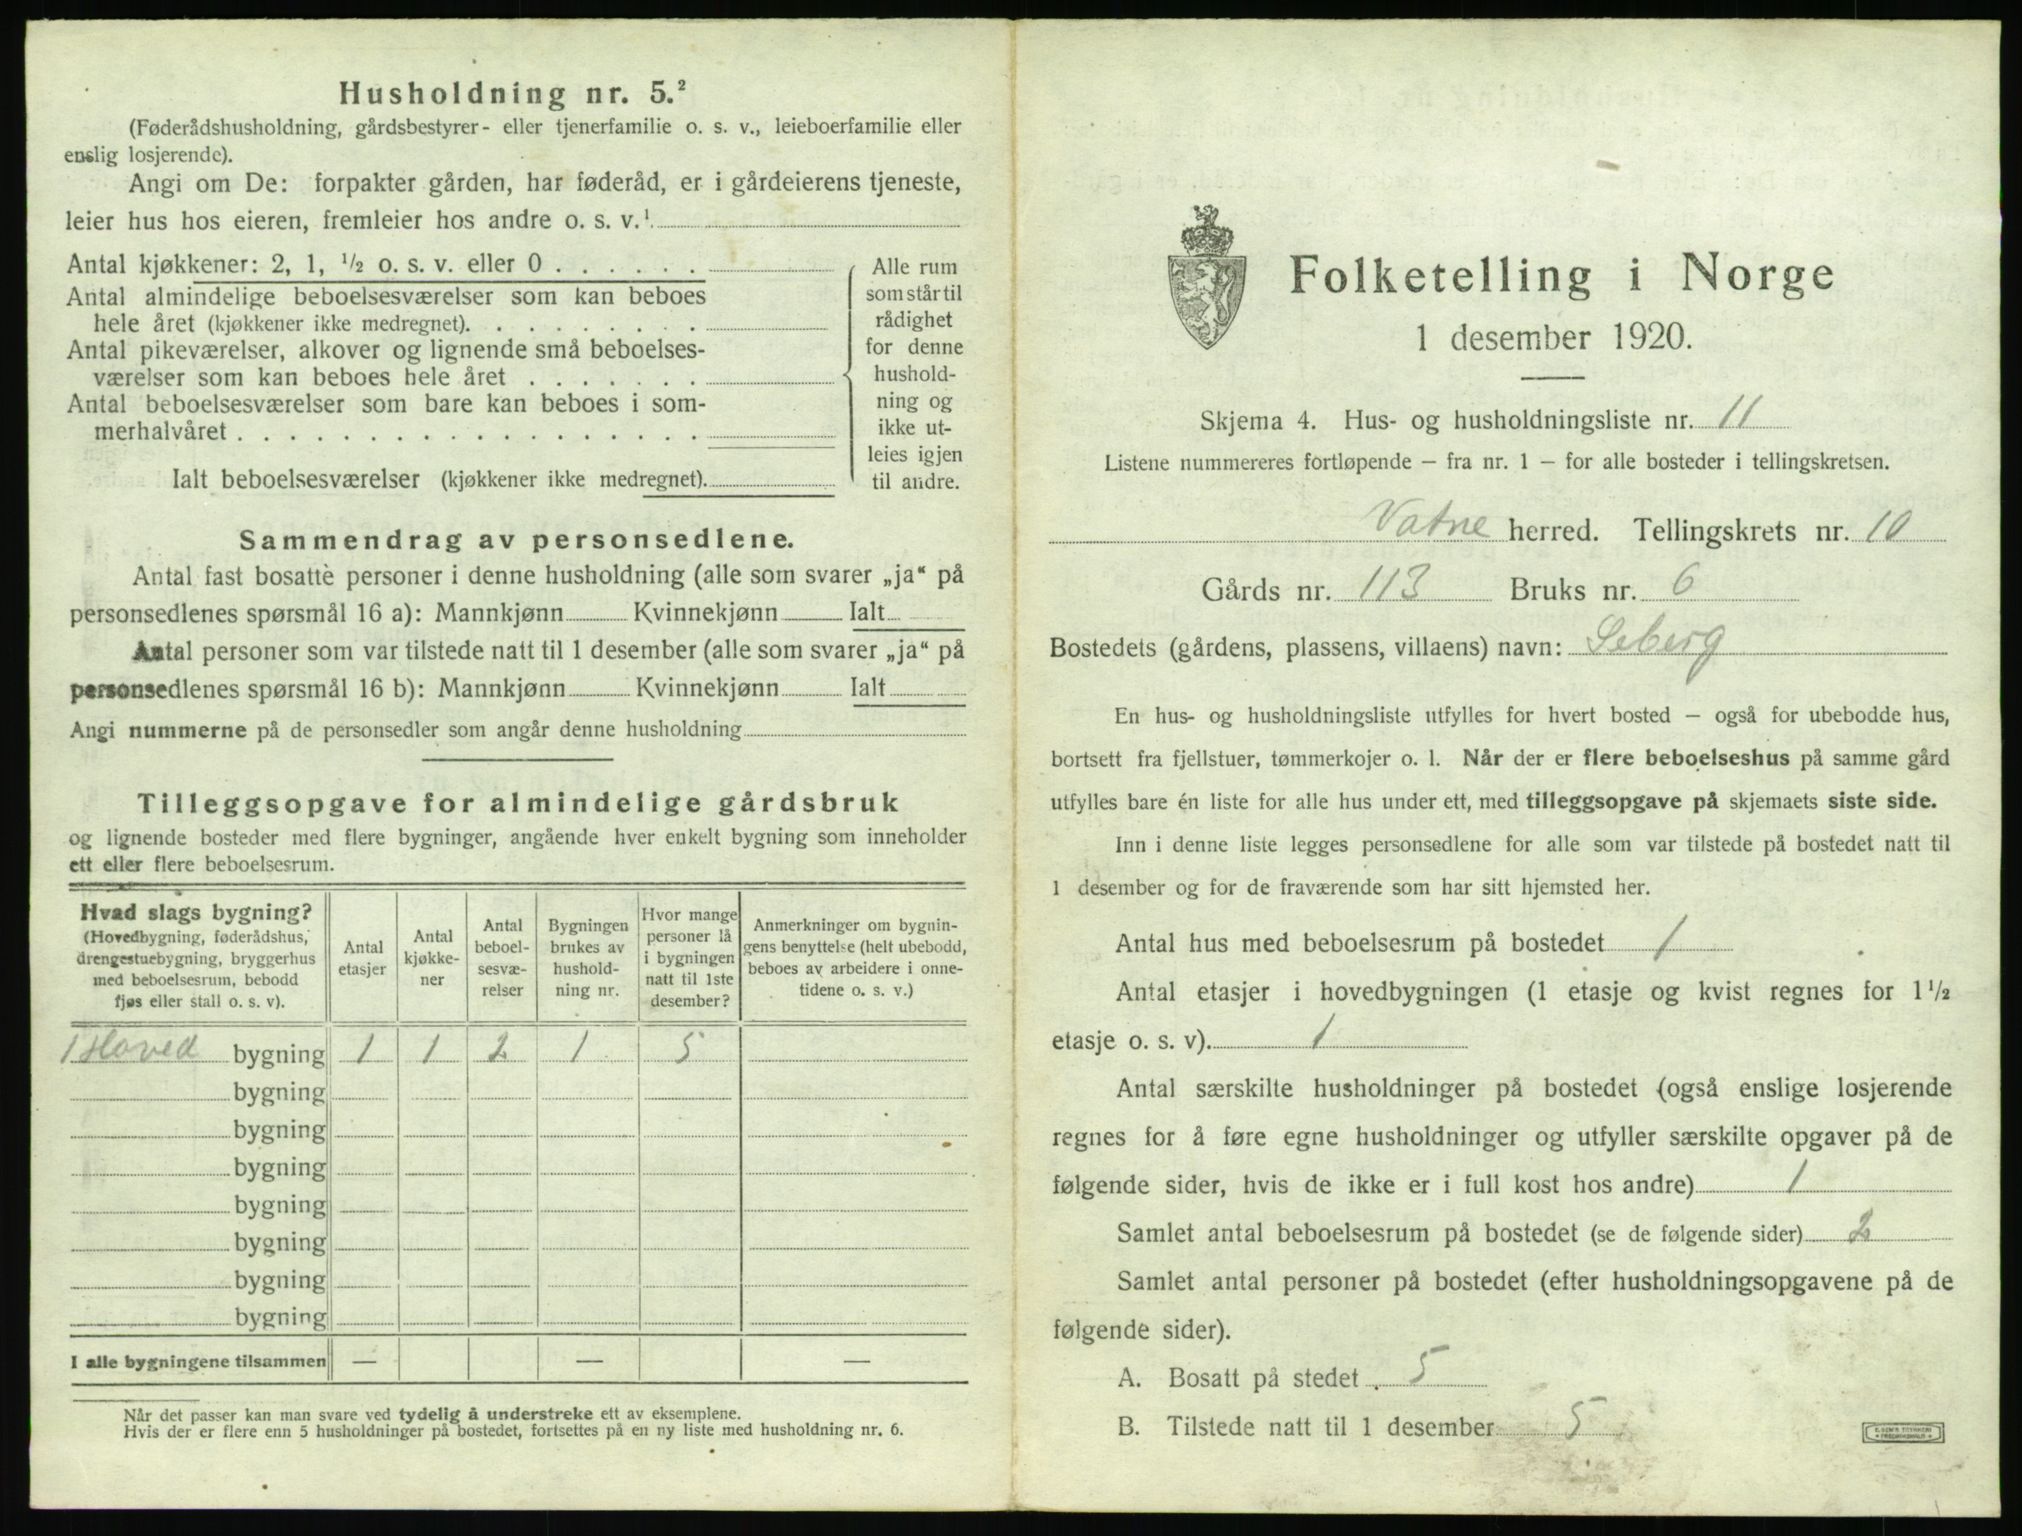 Husholdning nr. 5.²
(Føderådshusholdning, gårdsbestyrer- eller tjenerfamilie o. s. v., leieboerfamilie eller
enslig losjerende).
Angi om De: forpakter gården, har føderåd, er i gårdeierens tjeneste,
leier hus hos eieren, fremleier hos andre o. s. v.¹
Antal kjøkkener: 2, 1, ½ o. s. v. eller 0 . . . . . .
Antal almindelige beboelsesværelser som kan beboes
hele året (kjøkkener ikke medregnet). . . . . . . . .
Antal pikeværelser, alkover og lignende små beboelses-
værelser som kan beboes hele året . . . . . . .
Antal beboelsesværelser som bare kan beboes i som-
merhalvåret . . . . . . . . . . . . . . . . . .
Ialt beboelsesværelser (kjøkkener ikke medregnet).
Alle rum
som står til
rådighet
for denne
hushold-
ning og
ikke ut-
leies igjen
til andre.
Sammendrag av personsedlene.
Antal fast bosatte personer i denne husholdning (alle som svarer „ja“ på
personsedlenes spørsmål 16 a): Mannkjønn Kvinnekjønn Ialt
Antal personer som var tilstede natt til 1 desember (alle som svarer „ja“ på
personsedlenes spørsmål 16 b): Mannkjønn Kvinnekjønn Ialt
Angi nummerne på de personsedler som angår denne husholdning
Tilleggsopgave for almindelige gårdsbruk
og lignende bosteder med flere bygninger, angående hver enkelt bygning som inneholder
ett eller flere beboelsesrum.
Hvad slags bygning?
(Hovedbygning, føderådshus,
drengestuebygning, bryggerhus
med beboelsesrum, bebodd
fjøs eller stall o. s. v).
Antal
etasjer
Antal
kjøkke-
ner
Antal
beboel-
sesvæ-
relser
Bygningen
brukes av
hushold-
ning nr.
Hvor mange
personer lå
i bygningen
natt til 1ste
desember?
Anmerkninger om bygnin-
gens benyttelse (helt ubebodd,
beboes av arbeidere i onne-
tidene o. s. v.)
1 Hoved bygning 1 1 2 1 5
bygning
bygning
bygning
bygning
bygning
bygning
bygning
I alle bygningene tilsammen — — —
Når det passer kan man svare ved tydelig å understreke ett av eksemplene.
Hvis der er flere enn 5 husholdninger på bostedet, fortsettes på en ny liste med husholdning nr. 6.
Folketelling i Norge
1 desember 1920.
Skjema 4. Hus- og husholdningsliste nr. 11
Listene nummereres fortløpende – fra nr. 1 – for alle bosteder i tellingskretsen.
Vatne herred. Tellingskrets nr. 10
Gårds nr. 113 Bruks nr. 6
Bostedets (gårdens, plassens, villaens) navn: Seberg
En hus- og husholdningsliste utfylles for hvert bosted – også for ubebodde hus,
bortsett fra fjellstuer, tømmerkojer o. l. Når der er flere beboelseshus på samme gård
utfylles bare én liste for alle hus under ett, med tilleggsopgave på skjemaets siste side.
Inn i denne liste legges personsedlene for alle som var tilstede på bostedet natt til
1 desember og for de fraværende som har sitt hjemsted her.
Antal hus med beboelsesrum på bostedet 1
Antal etasjer i hovedbygningen (1 etasje og kvist regnes for 1½
etasje o. s. v). 1
Antal særskilte husholdninger på bostedet (også enslige losjerende
regnes for å føre egne husholdninger og utfyller særskilte opgaver på de
følgende sider, hvis de ikke er i full kost hos andre) 1
Samlet antal beboelsesrum på bostedet (se de følgende sider) 2
Samlet antal personer på bostedet (efter husholdningsopgavene på de
følgende sider).
A. Bosatt på stedet 5
B. Tilstede natt til 1 desember 5